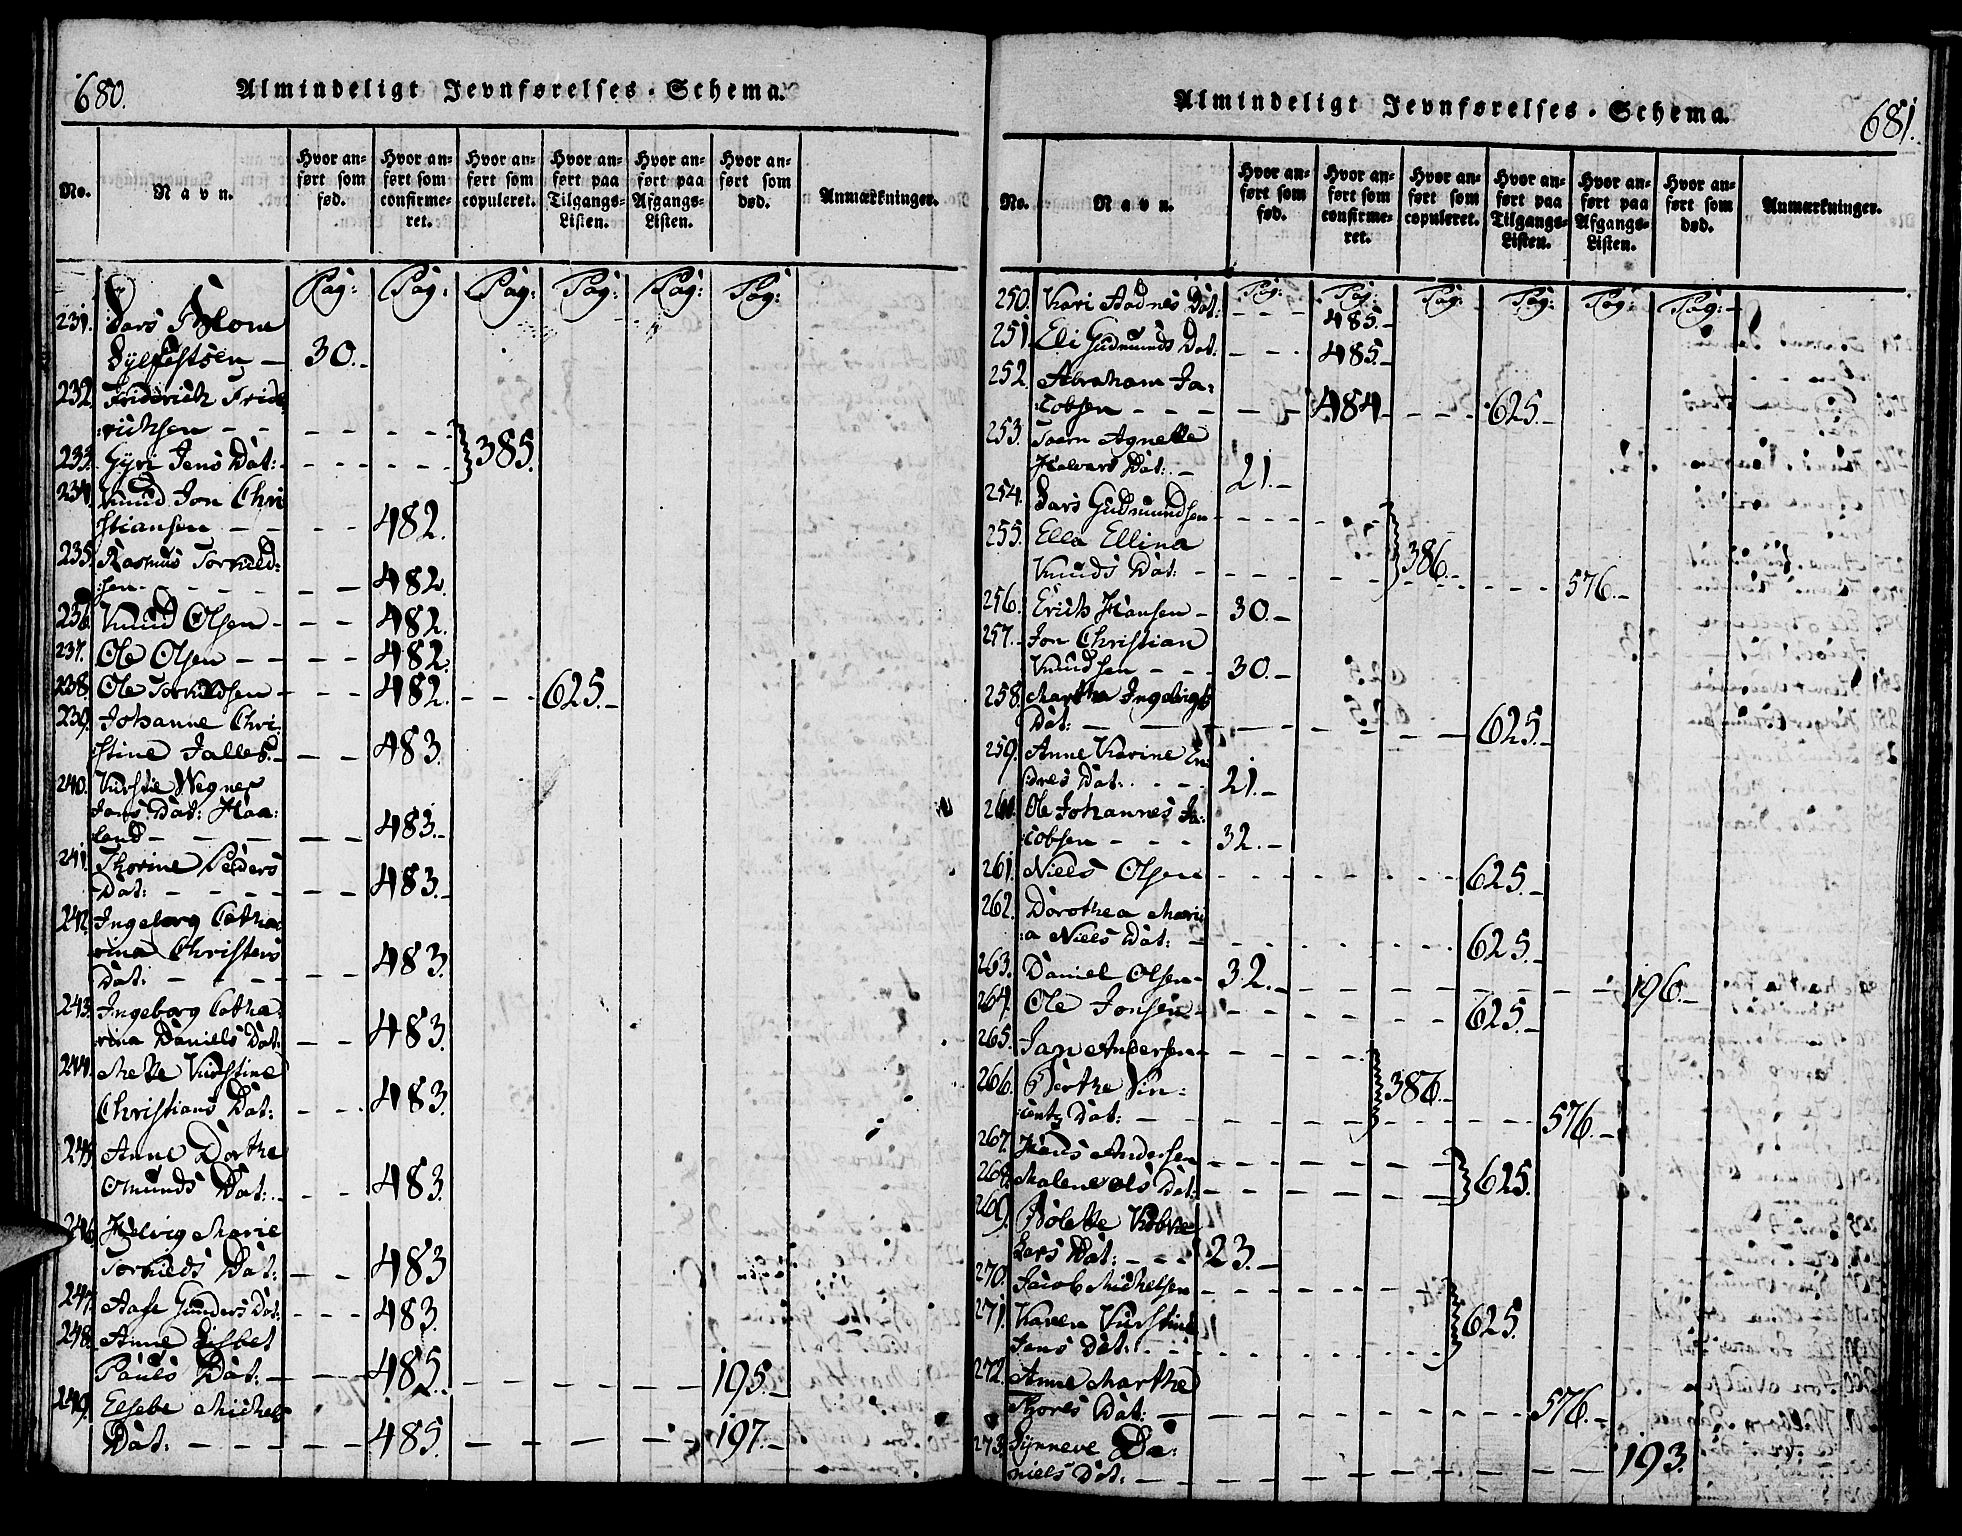 680.
Almindeligt Jevnførelses-Schema.
No.
Navn.
Hvor anført som fød.
Hvor anført som confirmeret.
Hvor anført som copuleret.
Hvor anført paa Tilgangs-Listen.
Hvor anført paa Afgangs-Listen.
Hvor anført som død.
Anmærkninger.
Pag: Pag: Pag: Pag: Pag: Pag:
231. Lars Blom
Sylfestsen — 30.
232. Friderich Fride
richsen - - - - - -
233. Gÿri Jens Dat: - - - - 385.
234. Knud Jon Chri
stiansen - - - 482.
235. Rasmus Torkild:
:sen - - - - 482.
236. Knud Olsen - - - 482.
237. Ole Olsen - - - - 482.
238. Ole Torkildsen - - - 482. - - - 625.
239. Johanne Chri:
stine Jalles. - - 483.
240. Kirstie Wegner
Jans Dat: Haa:
land - - - - 483.
241. Thorine Peders
Dat: - - - - 483.
242. Ingeborg Catha
rina Christens
Dat: - - - - 483.
243. Ingeborg Catha:
rina Daniels Dat: - - 483.
244. Mette Kirstine
Christians Dat: - - 483.
245. Anne Dorthe
Omunds Dat: - - 483.
246. Helvig Marie
Torkilds Dat: - - 483
247. Aase Gunders Dat: - - 483.
248. Anne Lisbet
Pauls Dat: - - - 485. - - - - 195.
249. Elsebe Michels
Dat: - - - - 485. - - - - 197.
681.
Almindeligt Jevnførelses-Schema.
No.
Navn.
Hvor anført som fød.
Hvor anført som confirmeret.
Hvor anført som copuleret.
Hvor anført paa Tilgangs-Listen.
Hvor anført paa Afgangs-Listen.
Hvor anført som død.
Anmærkninger.
Pag: Pag: Pag: Pag: Pag: Pag:
250. Kari Aadnes Dat: - - - 485.
251. Eli Gudmunds Dat: - - - 485.
252. Abraham Ja:
:cobsen - - - - - 484 - - - 625.
253. Taarn Agnette
Halvars Dat: - 21.
254. Lars Gudmundsen - - - - -
255. Ella Ellina
Knuds Dat: - - - - - 386. - - - 576.
256. Erich Hansen - 30.
257. Jon Christian
Knudsen - - - 30.
258. Martha Ingebrigts
Dat: - - - - - - 625.
259. Anne Karine En
dres Dat: - - - 21.
260. Ole Johannes Ja:
:cobsen - - - 32.
261. Niels Olsen - - - - - - 625.
262. Dorothea Mari
:a Niels Dat: - - - - - - 625.
263. Daniel Olsen - 32. - - - - - 196.
264. Ole Jonsen - - - - - - 625.
265. Jan Andersen - - - - -
266. Berthe Vin:
:centz Dat: - - - - - 386. - - - 576.
267. Hans Andersen - - - - - -
268. Malene Ols Dat: - - - - - - 625.
269. Bolette
Lars Dat: - - - 23.
270. Jacob Michelsen - - - - - -
271. Karen Kirstine
Jens Dat: - - - - - - 625.
272. Anne Marthe
Thores Dat: - - - - - - - 576.
273. Synneve Da:
niels Dat: - - - - - - - 193.